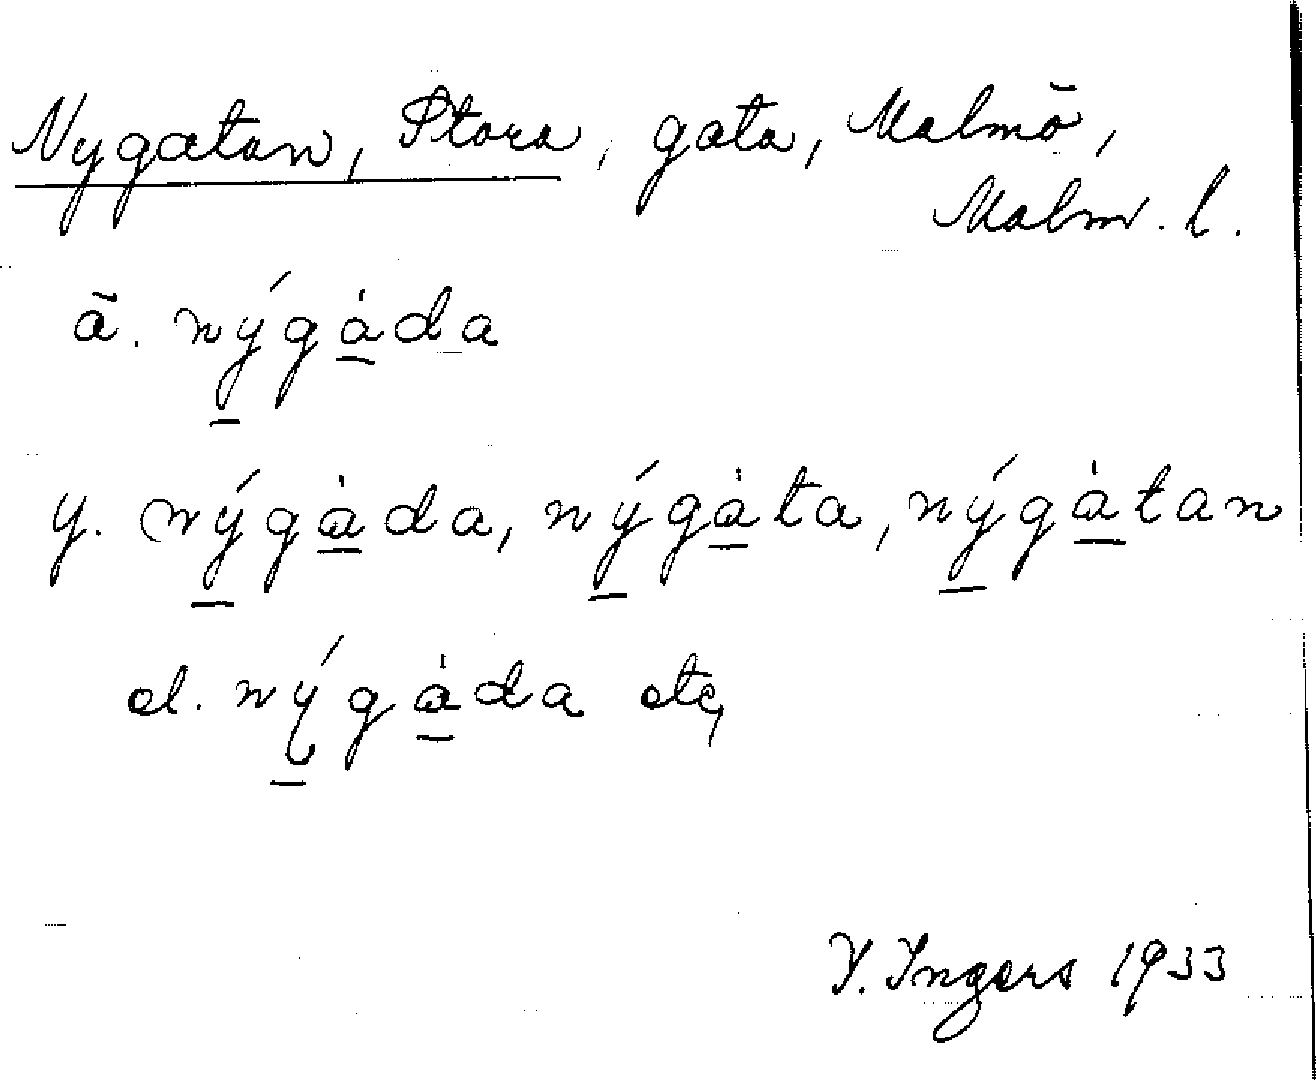 Nygatan, Stora, gata, Malmö,
Malm. l.
ä. nýgàda
y. nýgàda, nýgàta, nýgàtan
d. nýgàda etc,
I. Ingers 1933